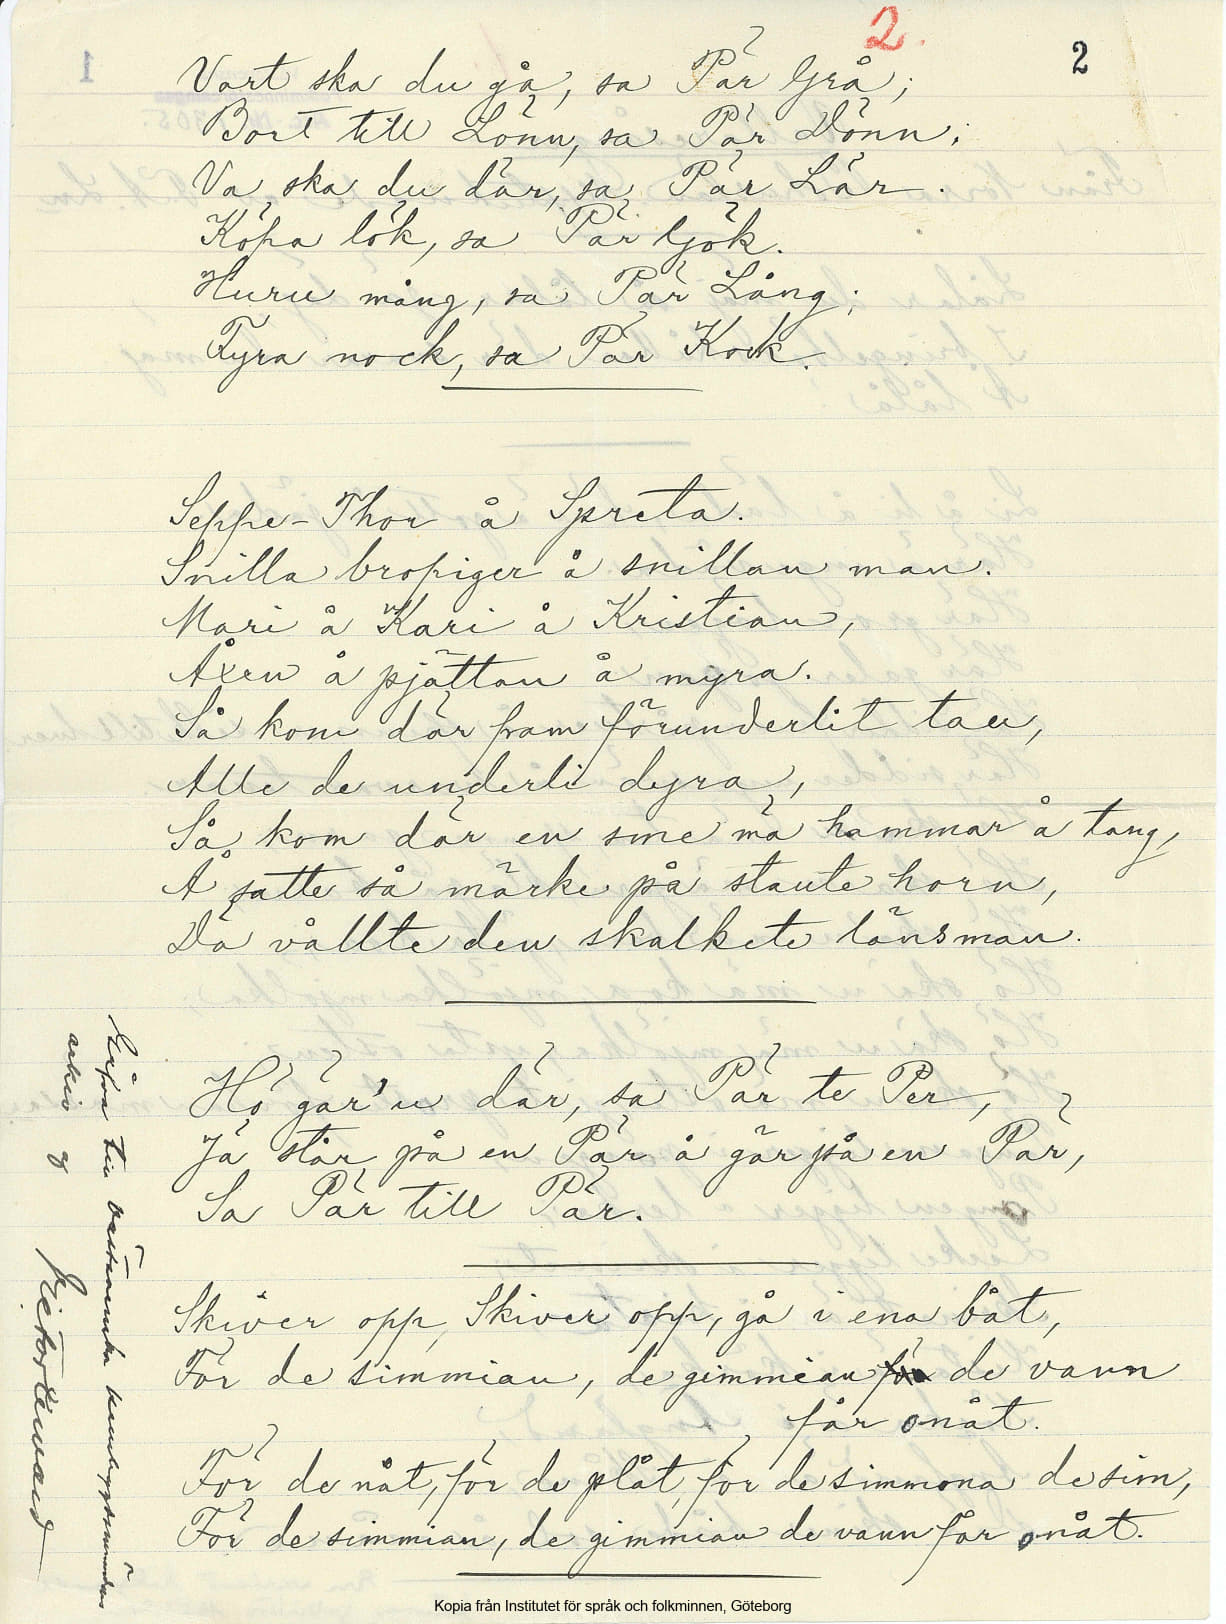 2.
2
Vart ska du gå, sa Pär Grå;
Bort till Lönn, sa Pär Dönn;
Va ska du där, sa Pär Lär.
Köpa lök, sa Pär Gjök.
Huru mång, sa Pär Lång;
Fyra nock, sa Pär Kock.
Seppe-Thor å Spreta.
Snilla bropiger å snillan man.
Mari å Kari å Kristian,
Åxen å pjättan å myra.
Så kom där fram förunderlit tau,
Alle de underli dyra,
Så kom där en sme mä hammar å tang,
Å satte så märke på staute horn,
Dä vållte den skalkete länsman.
Hö gär'u där, sa Pär te Per,
Jä står på en Pär å gär på en Pär,
Sa Pär till Pär.
Skiver opp, Skiver opp, gå i ena båt,
För de simmian, de gimmian de vann
får onåt.
För de nåt, för de plåt, för de simmona de sim,
För de simmian, de gimmian de vann får onåt.
till västsvenska
arkiv
Kopia från Institutet för språk och folkminnen, Göteborg